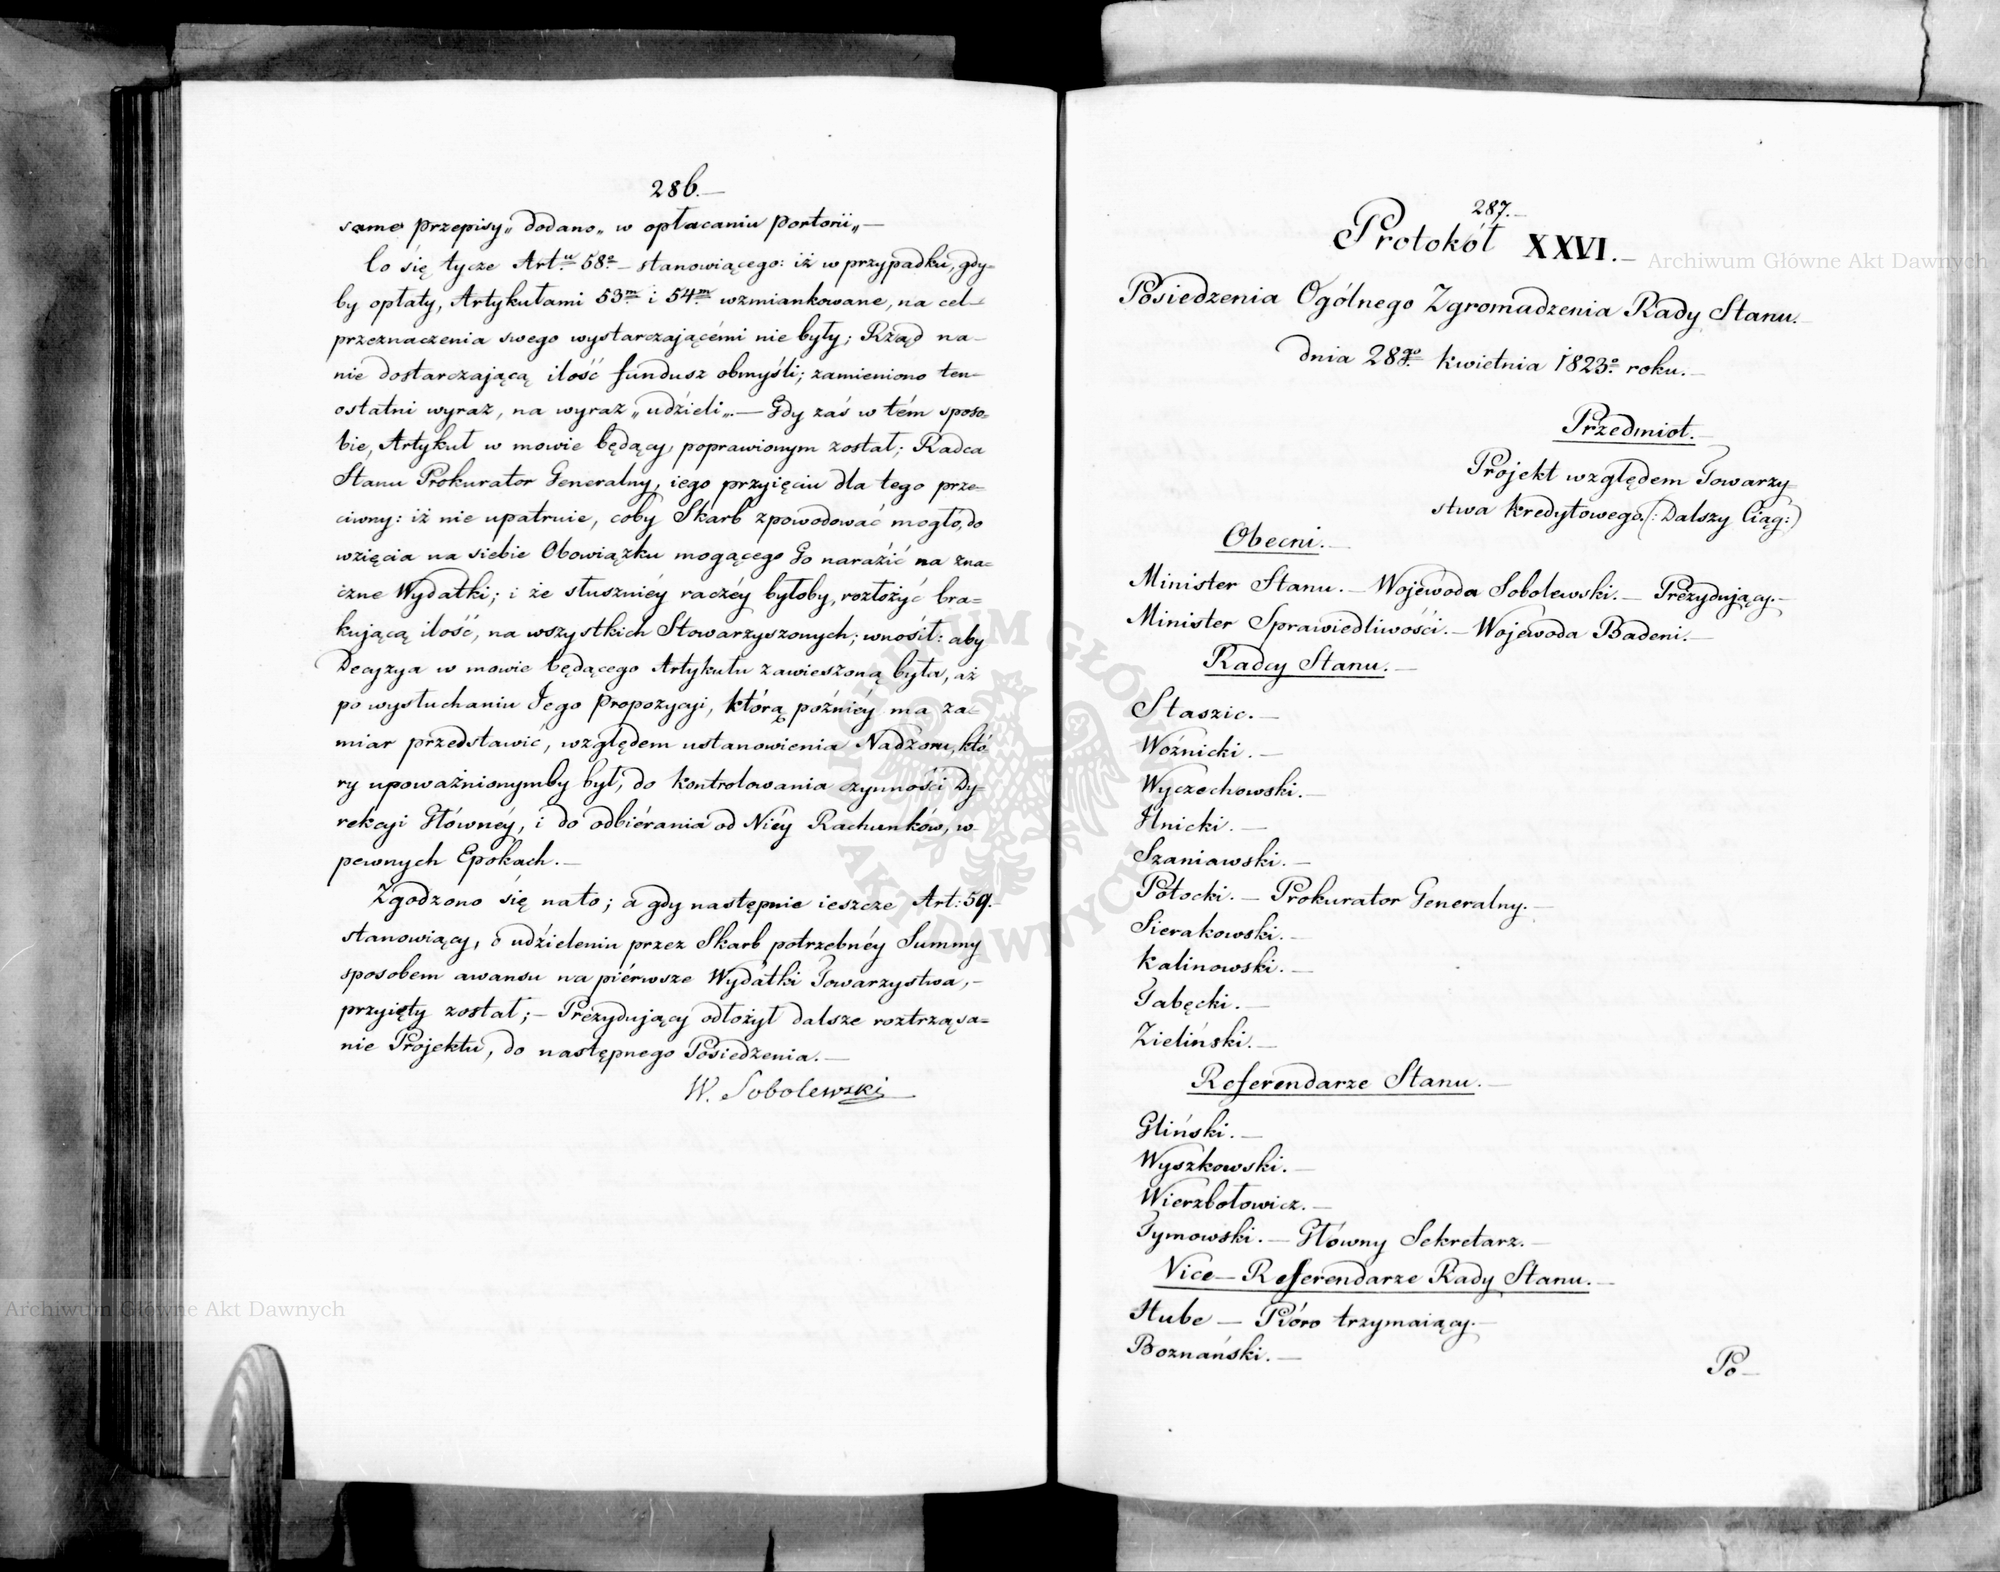 286.—
same przepisy„ dodano„ w opłacaniu portorii„—
Co się tycze Art.u 58o— stanowiącego: iż w przypadku, gdy=
by opłaty, Artykułami 53m i 54m wzmiankowane, na cel
przeznaczenia swego wystarczającémi nie były; Rząd na—
nie dostarczającą ilość fundusz obmyśli; zamieniono ten—
ostatni wyraz, na wyraz „udźieli„.— Gdy zaś w tém sposo=
bie, Artykuł w mowie będący, poprawionym został; Radca
Stanu Prokurator Generalny, iego przyięciu dla tego prze=
ciwny: iż nie upatruie, coby Skarb zpowodować mogło, do
wzięcia na siebie Obowiązku mogącego Go naraźić na zna=
czne Wydatki; i że słuszniéy raczéy byłoby, rozłożyć bra=
kującą ilość, na wszystkich Stowarzyszonych; wnośił: aby
Decyzya w mowie będącego Artykułu zawieszoną była, aż
po wysłuchaniu Jego Propozycyi, którą poźniéy ma za=
miar przedstawić, względem ustanowienia Nadzoru, któ=
ry upoważnionymby był, do kontrolowania czynnośći Dy=
rekcyi Głównéy, i do odbiérania od Niéy Rachunków, w
pewnych Epokach.—
Zgodzono się nato; a gdy następnie ieszcze Art: 59.
stanowiący, o udźieleniu przez Skarb potrzebnéy Summy
sposobem awansu na piérwsze Wydatki Towarzystwa,—
przyięty został;— Prezyduiący odłożył dalsze roztrząsa=
nie Projektu, do następnego Posiedzenia.—
W. Sobolewski
287.—
Protokół XXVI.—
Posiedzenia Ogólnego Zgromadzenia Rady Stanu.
dnia 28go kwietnia 1823o roku.—
Przedmiot.—
Projekt względem Towarzy=
stwa kredytowego (: Dalszy Ciąg:)
Obecni.—
Minister Stanu.— Wojewoda Sobolewski.— Prezydujący.—
Minister Sprawiedliwości.— Wojewoda Badeni.—
Radcy Stanu.—
Staszic.—
Woźnicki.—
Wyczechowski.—
Ilnicki.—
Szaniawski.—
Potocki.— Prokurator Generalny.—
Sierakowski.—
Kalinowski.—
Tabęcki.—
Zieliński.—
Referendarze Stanu.—
Gliński.—
Wyszkowski.—
Wierzbołowicz.—
Tymowski.— Główny Sekretarz.—
Vice— Referendarze Rady Stanu.—
Hube — Pióro trzymaiący.—
Boznański.—
Po—
Archiwum Główne Akt Dawnych
Archiwum Główne Akt Dawnych
ARCHIWUM GŁÓWNE AKT DAWNYCH